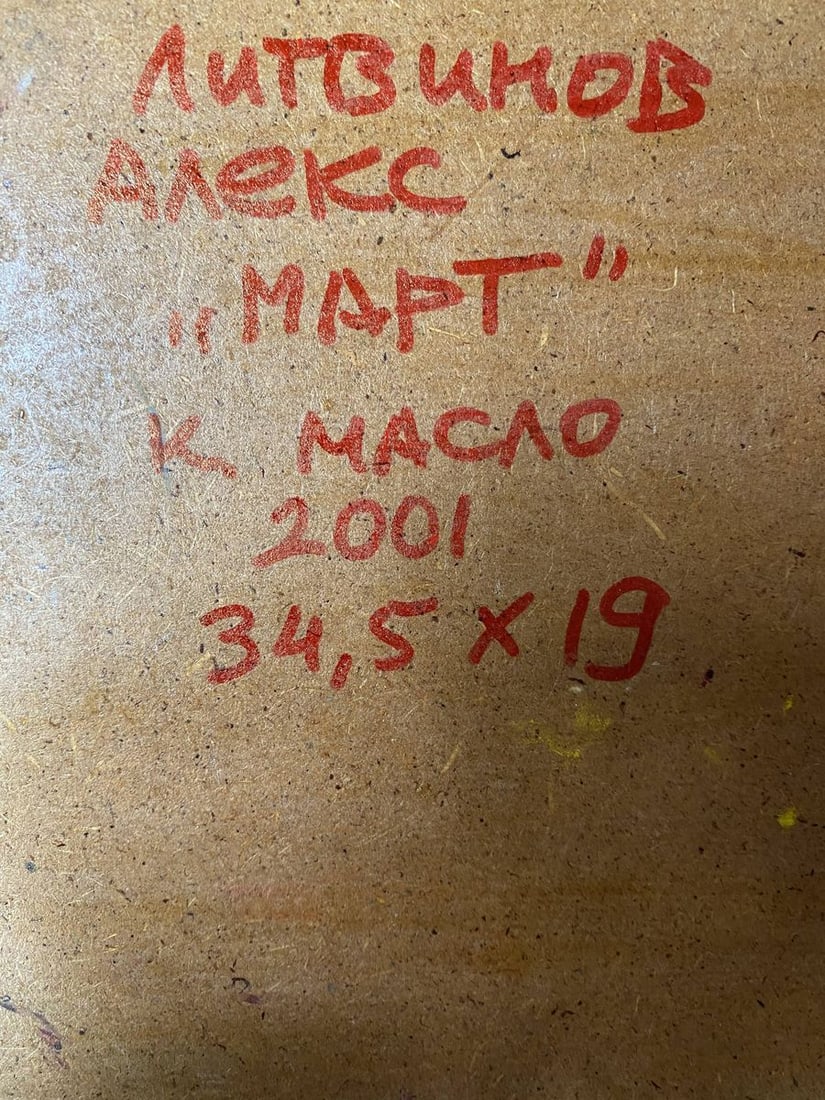 Литвинов
Алекс
„МАРТ"
К МАСЛО
2001
34,5 x 19